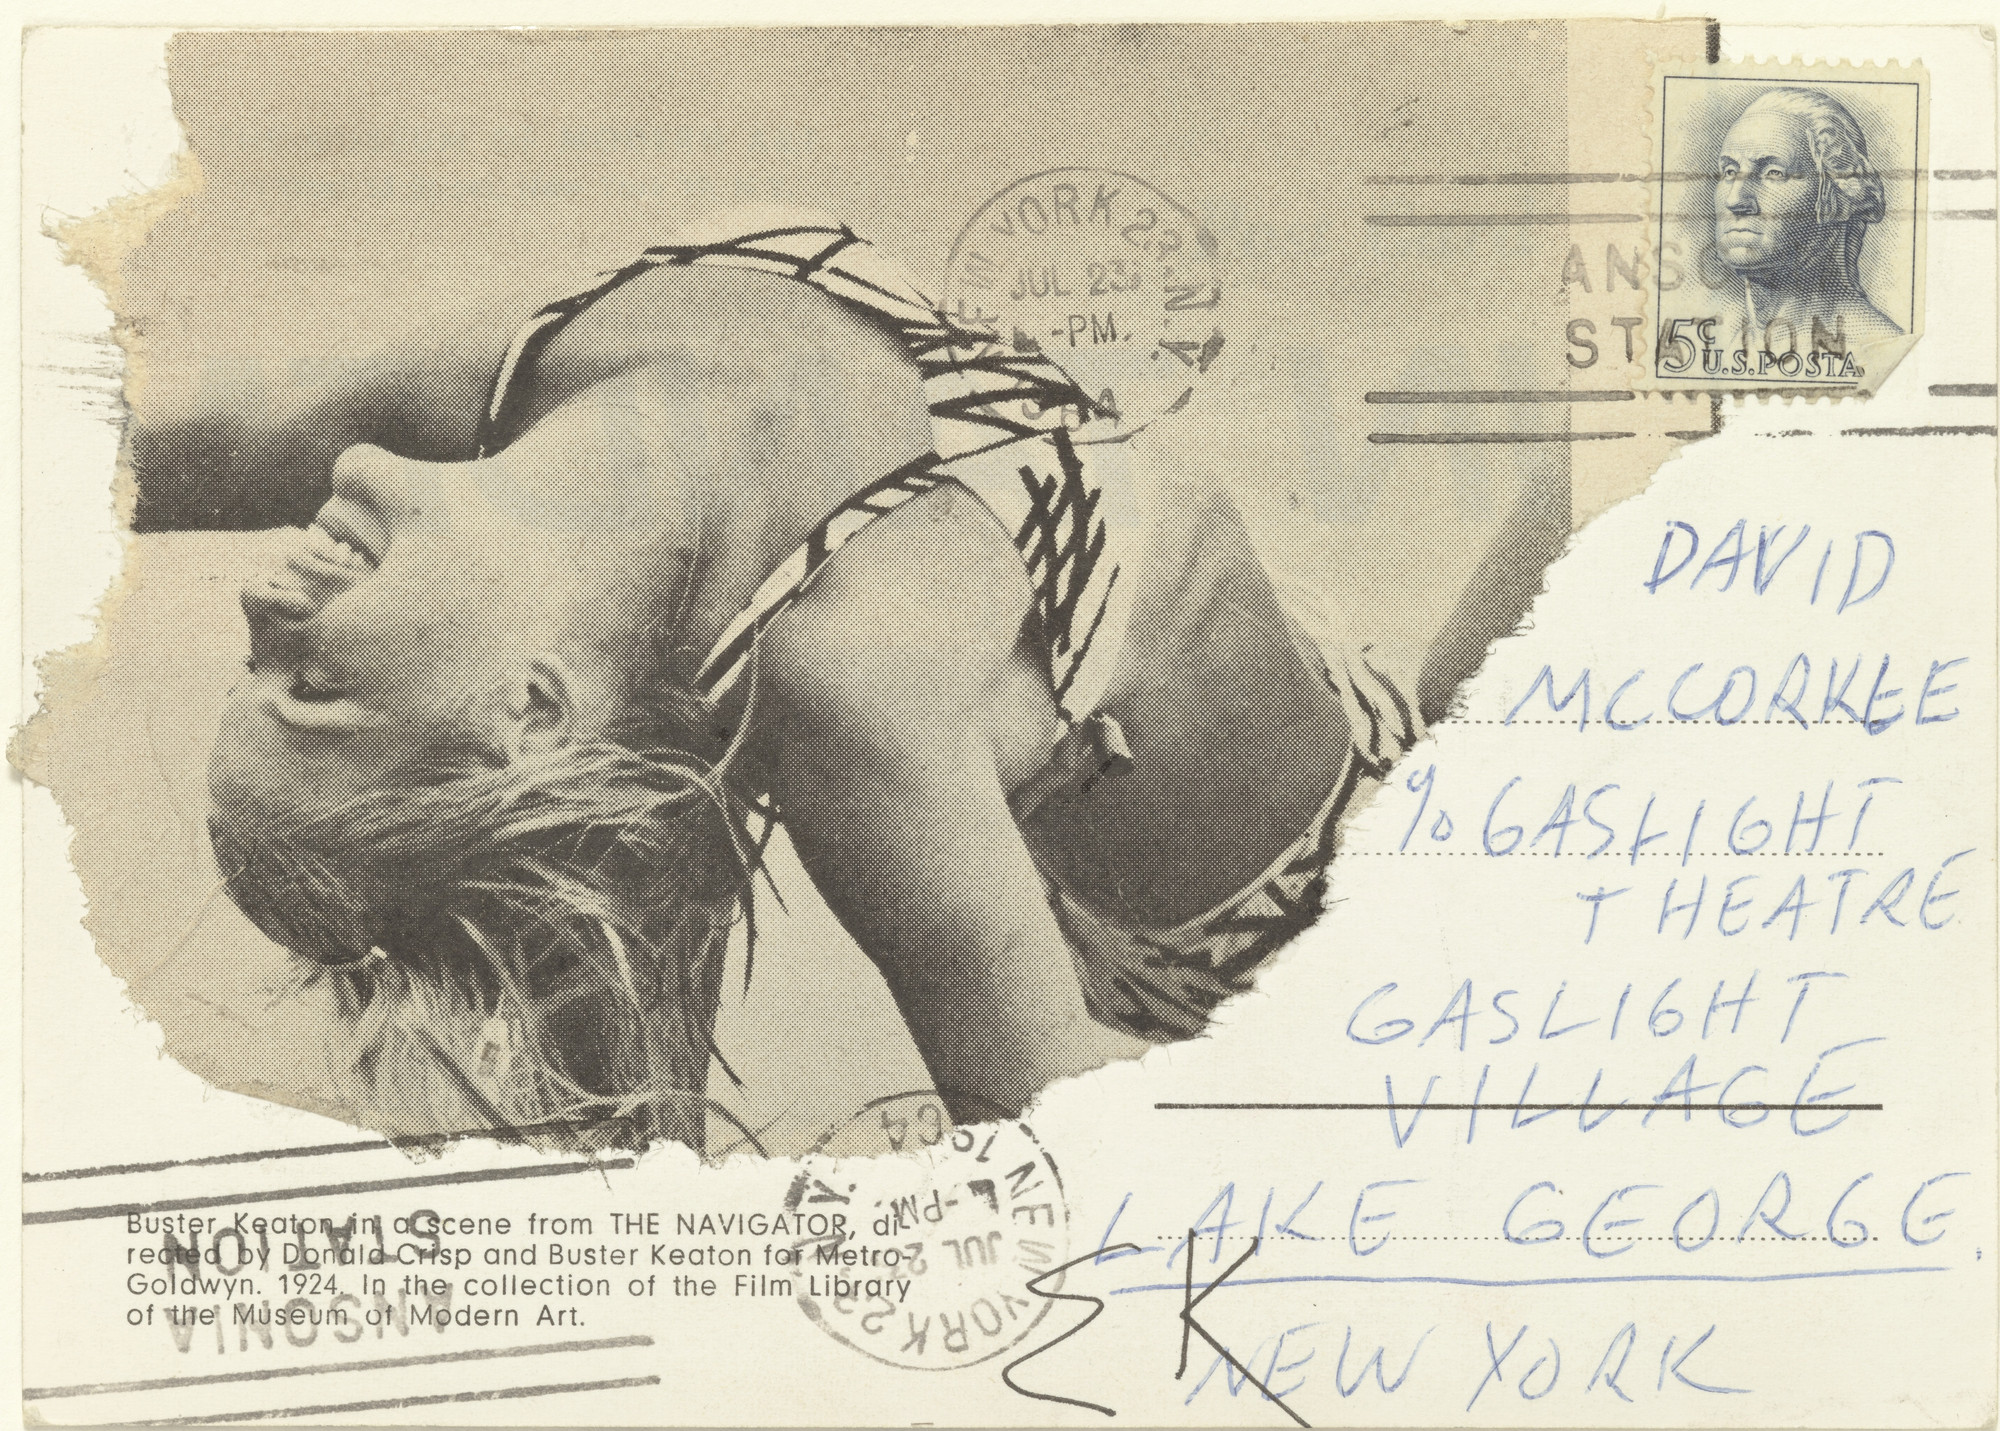 NEW YORK 23, N.Y.
JUL 23
-PM.
ANSO
STATION
5¢
U.S.POSTA
DAVID
MCCORKLE
% GASLIGHT
THEATRE
GASLIGHT
VILLAGE
LAKE GEORGE.
NEW YORK
EK
Buster Keaton in a scene from THE NAVIGATOR, di-
rected by Donald Crisp and Buster Keaton for Metro-
Goldwyn. 1924. In the collection of the Film Library
of the Museum of Modern Art.
ANSONIA
STATION
NEW YORK 23
JUL 23
-PM
1964